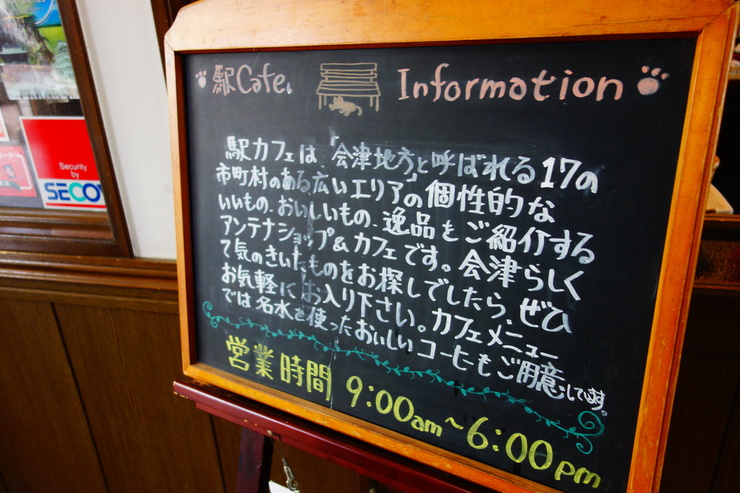 Security
by
SECO
駅Cafe. Information
駅カフェは、「会津地方」と呼ばれる17の
市町村のある広いエリアの個性的な
いいもの、おいしいもの、逸品をご紹介する
アンテナショップ&カフェです。会津らしく
て気のきいたものをお探しでしたら、ぜひ
お気軽にお入り下さい。カフェメニュー
では名水を使ったおいしいコーヒーもご用意しています。
営業時間 9:00am~6:00pm